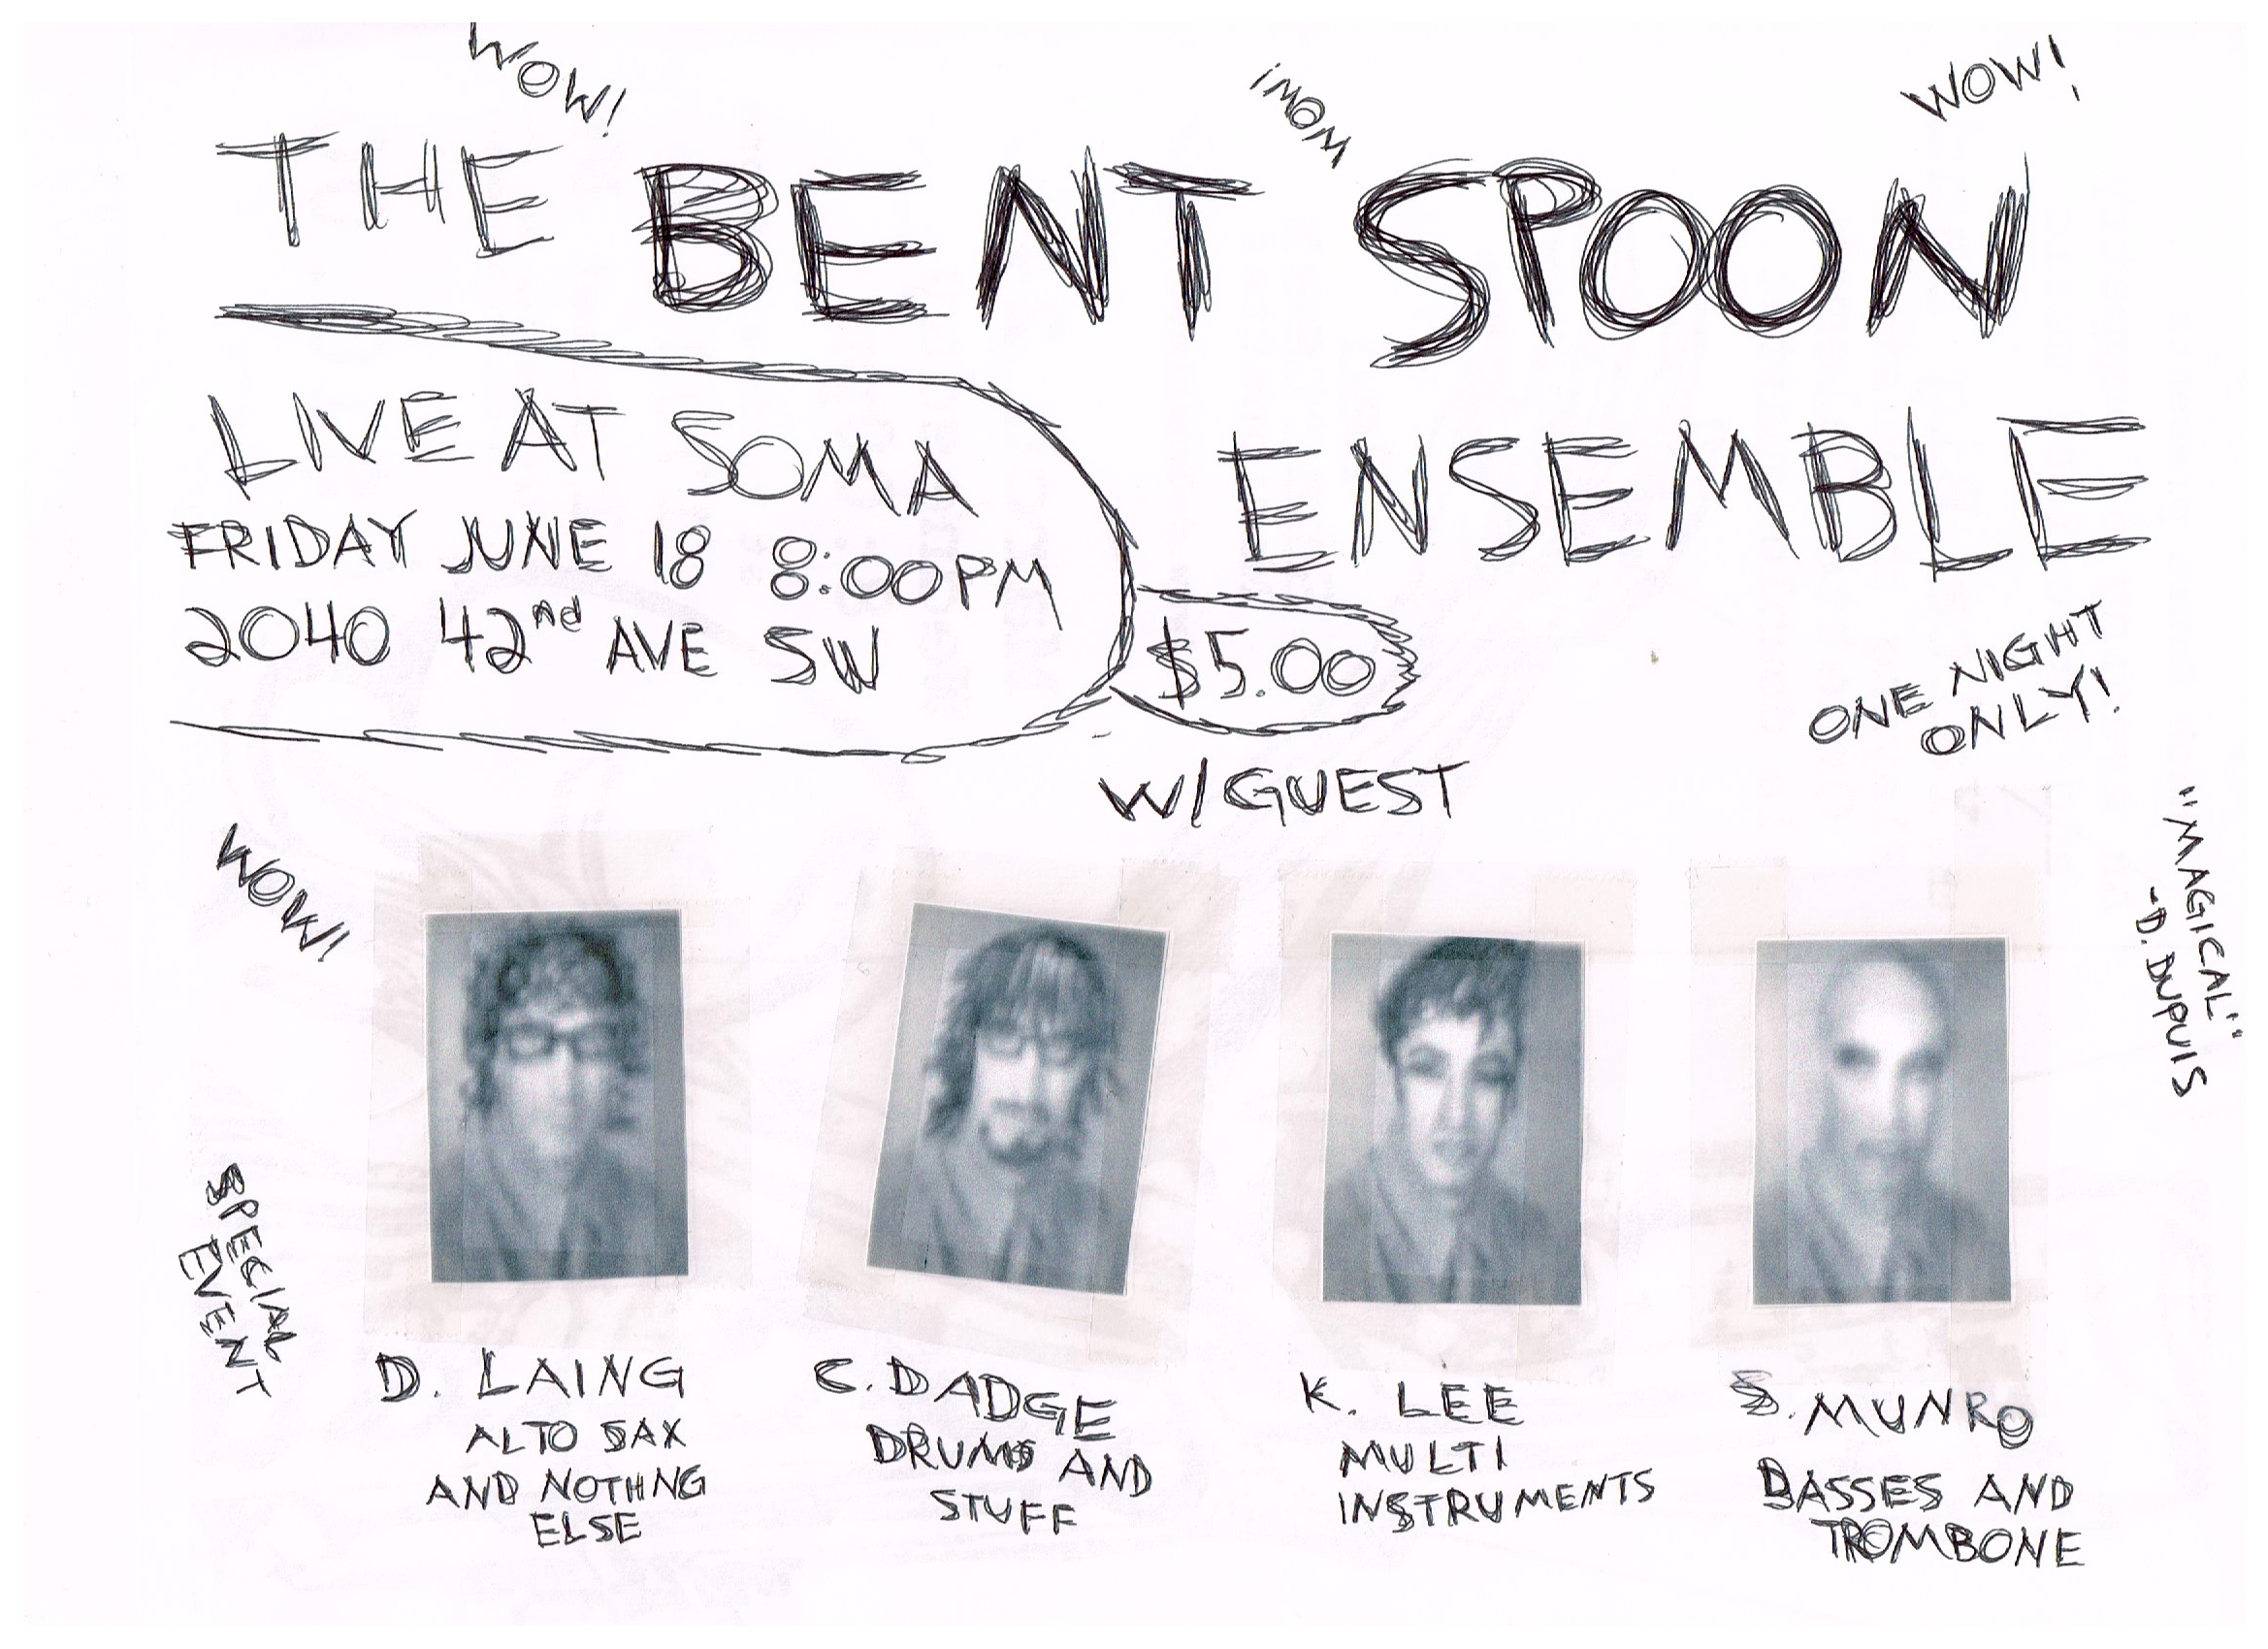 WOW!
WOW!
WOW!
THE BENT SPOON
ENSEMBLE
LIVE AT SOMA
FRIDAY JUNE 18 8:00PM
2040 42nd AVE SW
$5.00
ONE NIGHT
ONLY!
W/GUEST
WOW!
"MAGICAL"
-D. DUPUIS
SPECIAL
EVENT
D. LAING
ALTO SAX
AND NOTHNG
ELSE
C. DADGE
DRUMS AND
STUFF
K. LEE
MULTI
INSTRUMENTS
S. MUNRO
BASSES AND
TROMBONE